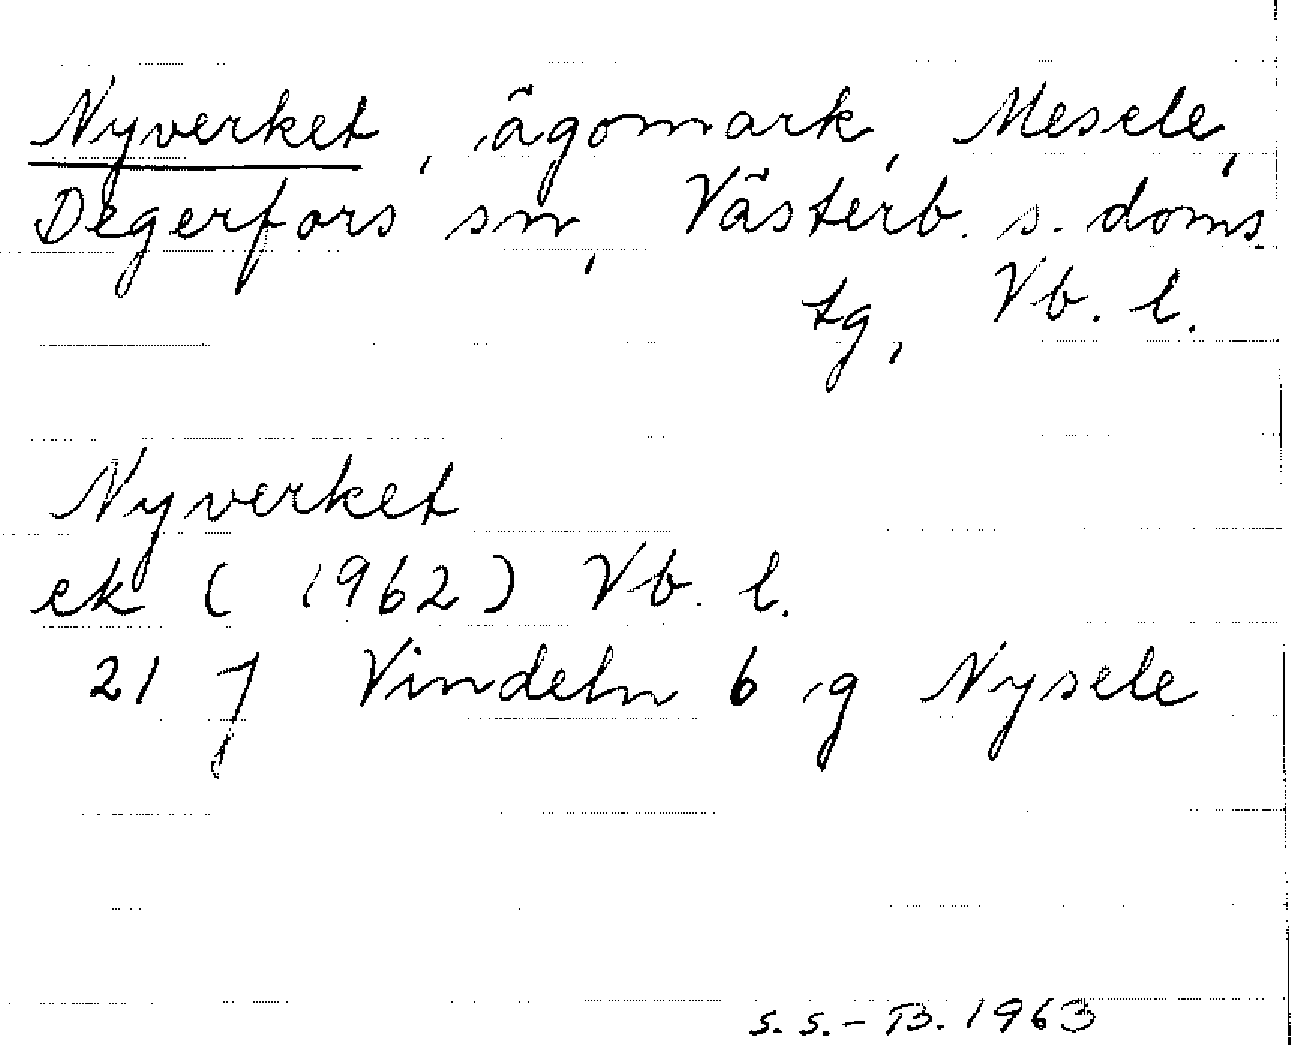 Nyverket, ägomark, Mesele,
Degerfors sn, Västerb. s. doms
tg, Vb. l.
Nyverket
ek (1962) Vb. l.
21 J Vindeln 6 g Nysele
S. S. - B. 1963